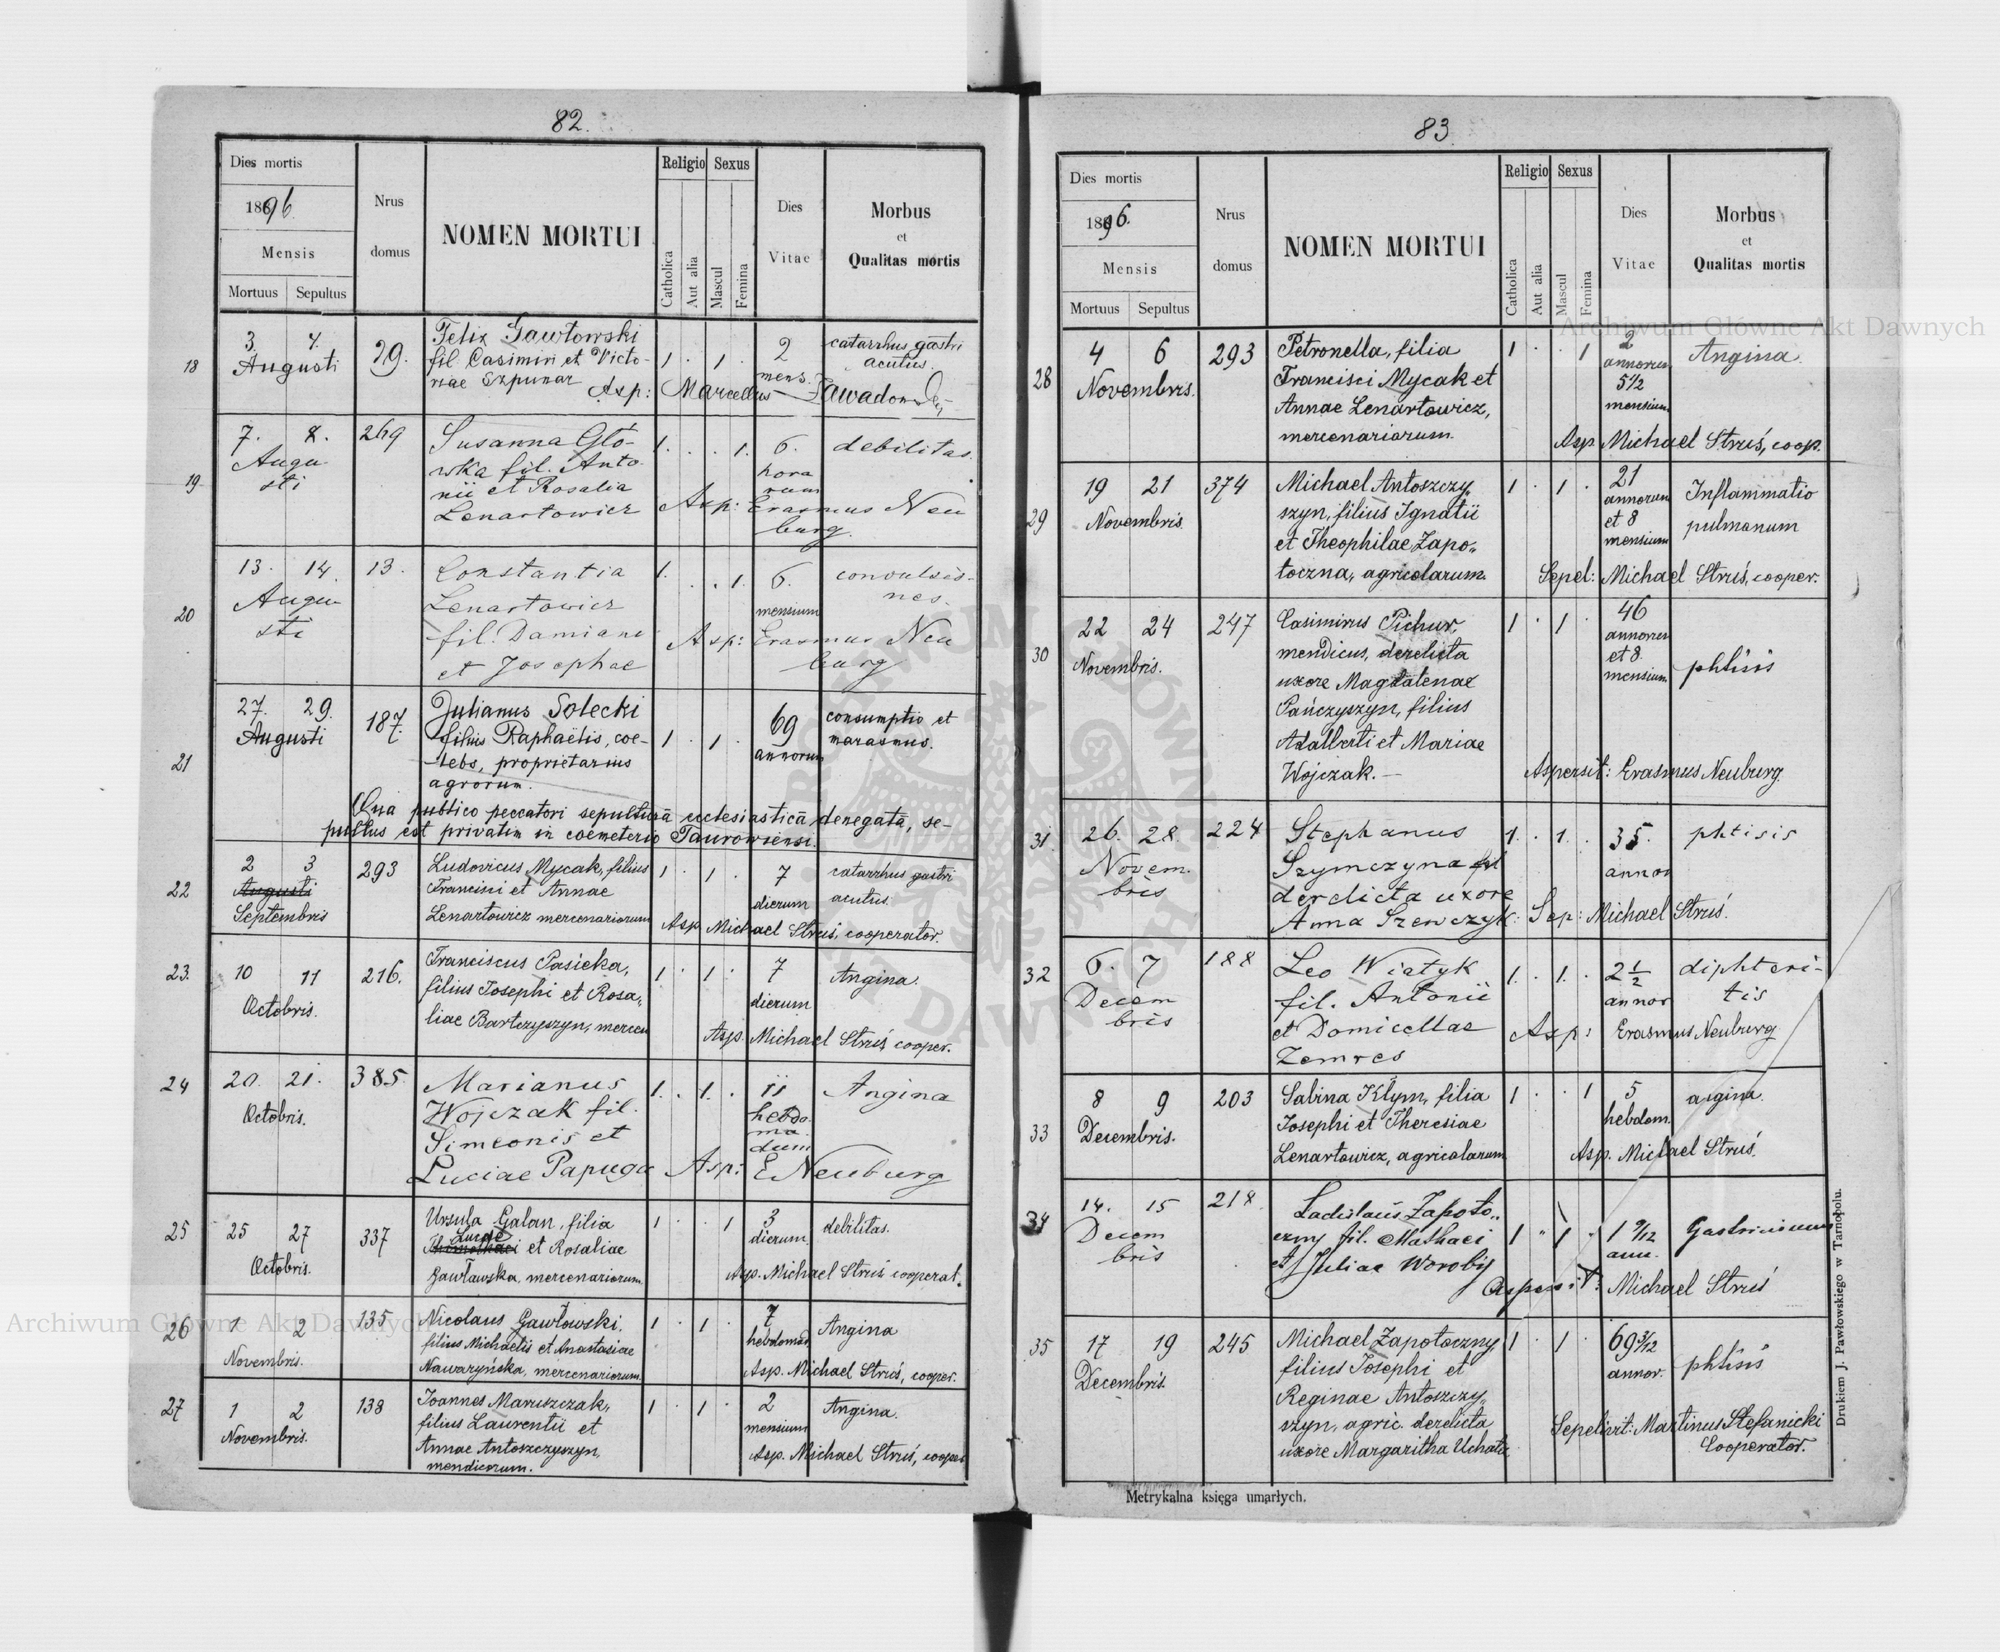 82.
Dies mortis
1896.
Mensis
Mortuus Sepultus
Nrus domus
NOMEN MORTUI
Religio
Catholica
Aut alia
Sexus
Mascul
Femina
Dies Vitae
Morbus
et
Qualitas mortis
18
3. 4.
Augusti
29.
Felix Gawłowski
fil. Casimiri et Victo-
riae Szpunar
1 . 1 .
2
mens.
catarrhus gastri
acutus.
Asp: Marcellus Zawadowski
19
7. 8.
Augu
sti
269
Susanna Gło-
wska fil. Anto-
nii et Rosalia
Lenartowicz
1. . . 1.
6.
hora
rum
debilitas.
Asp: Erasmus Neu
burg.
20
13. 14.
Augu
sti
13.
Constantia
Lenartowicz
fil. Damiani
et Josephae
1. . . 1.
6.
mensium
convulsio-
nes.
Asp: Erasmus Neu
burg
21
27. 29.
Augusti
187.
Julianus Solecki
filius Raphaëlis, coe-
lebs, proprietarius
agrorum.
1 . 1 .
69
annorum
consumptio et
marasmus.
Qua publico peccatori sepulturâ ecclesiasticâ denegatâ, se-
pultus est privatim in coemeterio Taurowiensi.
22
2 3
Augusti
Septembris
293
Ludovicus Mycak, filius
Francisci et Annae
Lenartowicz mercenariorum
1 . 1 .
7
dierum
catarrhus gastri
acutus.
Asp Michael Struś, cooperator.
23.
10 11
Octobris.
216.
Franciscus Pasieka,
filius Josephi et Rosa„
liae Bartczyszyn, mercen
1 . 1 .
7
dierum
Angina.
Asp. Michael Struś cooper.
24
20. 21.
Octobris.
385
Marianus
Wojczak fil.
Simeonis et
Luciae Papuga
1. . 1. .
11
hebdo
ma
dum
Angina
Asp: E Neuburg
25
25 27
Octobris.
337
Ursula Galan, filia
Lucae
et Rosaliae
Gawławska, mercenariorum
1 . . 1
3
dierum
debilitas.
Asp. Michael Struś cooperat.
26
1 2
Novembris.
135
Nicolaus Gawłowski,
filius Michaelis et Anastasiae
Nawaryńska, mercenariorum
1 . 1 .
7
hebdomad
Angina
Asp. Michael Struś, cooper.
27
1 2
Novembris.
138
Joannes Maruszczak,
filius Laurentii et
Annae Antoszczyszyn,
mendicorum.
1 . 1 .
2
mensium
Angina.
Asp. Michael Struś, cooper
83
Dies mortis
1896.
Mensis
Mortuus Sepultus
Nrus domus
NOMEN MORTUI
Religio
Catholica
Aut alia
Sexus
Mascul
Femina
Dies Vitae
Morbus
et
Qualitas mortis
28
4 6
Novembris.
293
Petronella, filia
Francisci Mycak et
Annae Lenartowicz,
mercenariorum.
1 . . 1
2
annorum
5 1/2
mensium
Angina.
Asp Michael Struś, coop.
29
19 21
Novembris.
374
Michael Antoszczy„
szyn, filius Ignatii
et Theophilae Zapo„
toczna, agricolarum.
1 . 1 .
21
annorum
et 8
mensium
Inflammatio
pulmanum
Sepel: Michael Struś, cooper.
30
22 24
Novembris.
247
Casimirus Pichur,
mendicus, derelicta
uxore Magdalenae
Pańczyszyn, filius
Adalberti et Mariae
Wojczak.—
1 . 1 .
46
annorum
et 8
mensium
phtisis
Aspersit: Erasmus Neuburg.
31.
26. 28.
Novem.
bris
224
Stephanus
Szymczyna fil
derelicta uxore
Anna Szewczyk:
1. . 1. .
35.
annor
phtisis
Sep: Michael Struś.
32
6. 7
Decem
bris
188
Leo Wiatyk
fil. Antonii
et Domicellae
Zemres
1. . 1. .
2 1/2
annor
diphteri-
tis
Asp: Erasmus Neuburg
33
8 9
Decembris.
203
Sabina Kłym, filia
Josephi et Theresiae
Lenartowicz, agricolarum
1 . . 1
5
hebdom.
angina.
Asp. Michael Struś.
34
14. 15
Decem
bris
218
Ladislaus Zapoto„
czny fil. Mathaei
et Juliae Worobij
1 „ 1 .
1 9/12
ann.
Gastricismus
Aspersit: Michael Struś
35
17 19
Decembris.
245
Michael Zapotoczny
filius Josephi et
Reginae Antoszczy„
szyn, agric. derelicta
uxore Margaritha Uchata
1 1 .
69 3/12
annor.
phtisis
Sepelivit: Martinus Stefanicki
Cooperator.
Metrykalna księga umarłych.
Drukiem J. Pawłowskiego w Tarnopolu.
Archiwum Główne Akt Dawnych
Archiwum Główne Akt Dawnych
ARCHIWUM GŁÓWNE AKT DAWNYCH